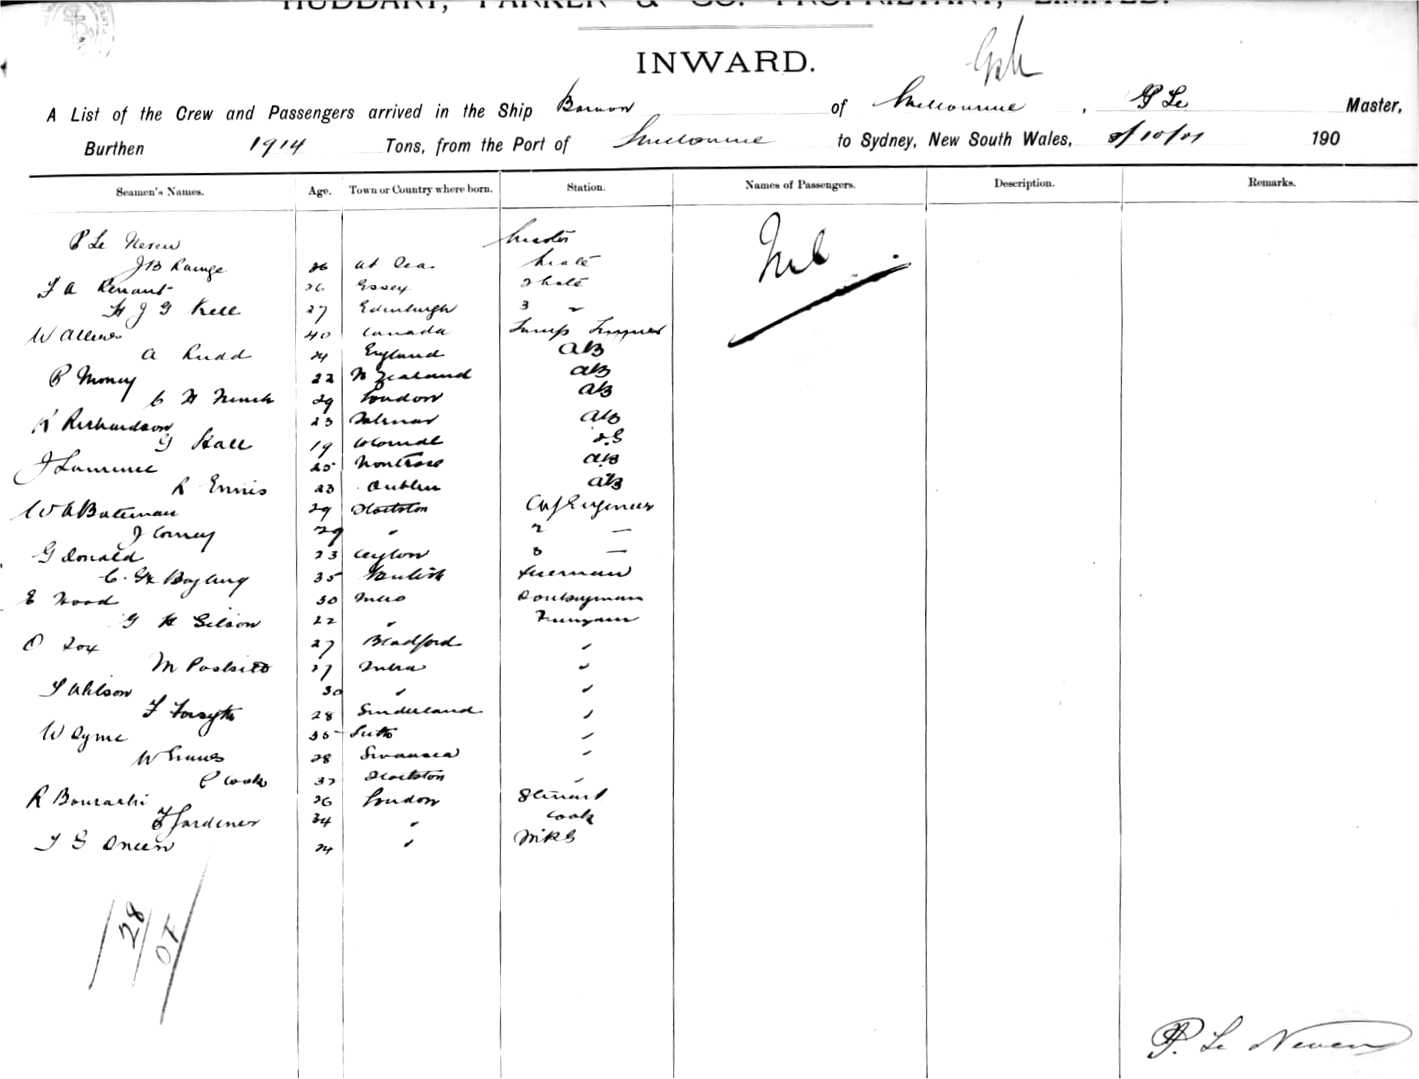 HUDDART, PARKER & CO. PROPRIETARY, LIMITED.
INWARD.
A List of the Crew and Passengers arrived in the Ship Barwon of Melbourne, P Le Master,
Burthen 1914 Tons, from the Port of Melbourne to Sydney, New South Wales, 8/10/01 190
Seamen's Names. Age. Town or Country where born. Station. Names of Passengers. Description. Remarks.
P Le Neven Master
J B Rainge 26 at Sea Mate
F A Renaut 26 Essex 2 Mate
H J G Kell 27 Edinburgh 3 "
W Allen 40 Canada Lamp Trimmer
A Rudd 24 England AB
P Money 22 N Zealand AB
C H 29 London AB
K Richardson 23 AB
G Hall 19 Colonial O.S
J Lawrence 25 Montrose AB
R Ennis 23 Dublin AB
W A Bateman 29 Stockton Chf Engineer
J Corney 29 " 2 —
G Donald 23 Ceylon 3 —
C. 35 Fireman
E Wood 30 Melb Donkeyman
G H Gilson 22 " Fireman
O Fox 27 Bradford "
M 27 Melb "
30 " "
F Forsyth 28 Sunderland "
W Syme 35 Leith "
W 28 Swansea "
P Cook 32 Stockton "
R 26 London Steward
F Gardiner 34 " Cook
T S 24 " M R S
Nil
28
P. Le Neven